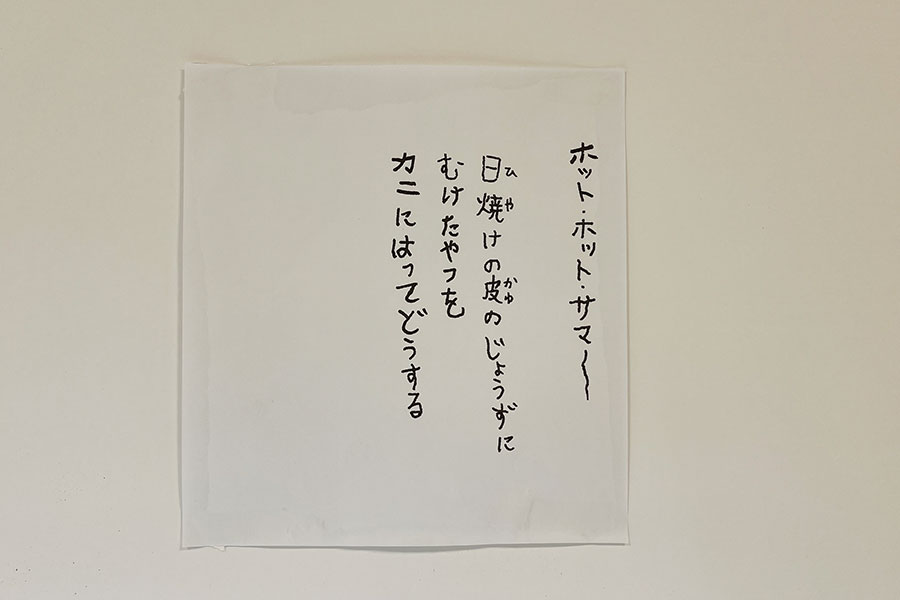 ホット・ホット・サマ〜〜
日焼けの皮のじょうずに
ひや かゆ
むけたやつを
カニにはってどうする